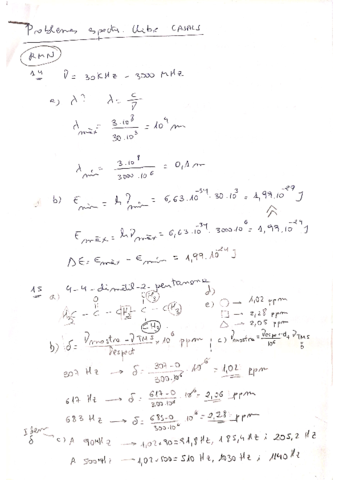 Problemes espectr. llibre CASALS
RMN
14 ν = 30 KHz - 3000 MHz
a) λ? λ = c/ν
λ màx = 3·10⁸ / 30·10³ = 10⁴ m
λ min = 3·10⁸ / 3000·10⁶ = 0,1 m
b) E min = h ν min = 6,63·10⁻³⁴ · 30·10³ = 1,99·10⁻²⁹ J
E màx = h ν màx = 6,63·10⁻³⁴ · 3000·10⁶ = 1,99·10⁻²⁴ J
ΔE = E màx - E min = 1,99·10⁻²⁴ J
15 a) 4-4-dimetil-2-pentanona d)
e) ○ → 1,02 ppm
□ → 2,28 ppm
△ → 2,06 ppm
b) δ = ν mostra - ν TMS / ν espect · 10⁶ ppm
307 Hz → δ = 307-0 / 300·10⁶ · 10⁶ = 1,02 ppm
617 Hz → δ = 617-0 / 300·10⁶ · 10⁶ = 2,06 ppm
683 Hz → δ = 683-0 / 300·10⁶ · 10⁶ = 2,28 ppm
c) A 90 MHz → 1,02·90 = 91,8 Hz, 185,4 Hz; 205,2 Hz
A 500 MHz → 1,02·500 = 510 Hz, 1030 Hz; 1140 Hz